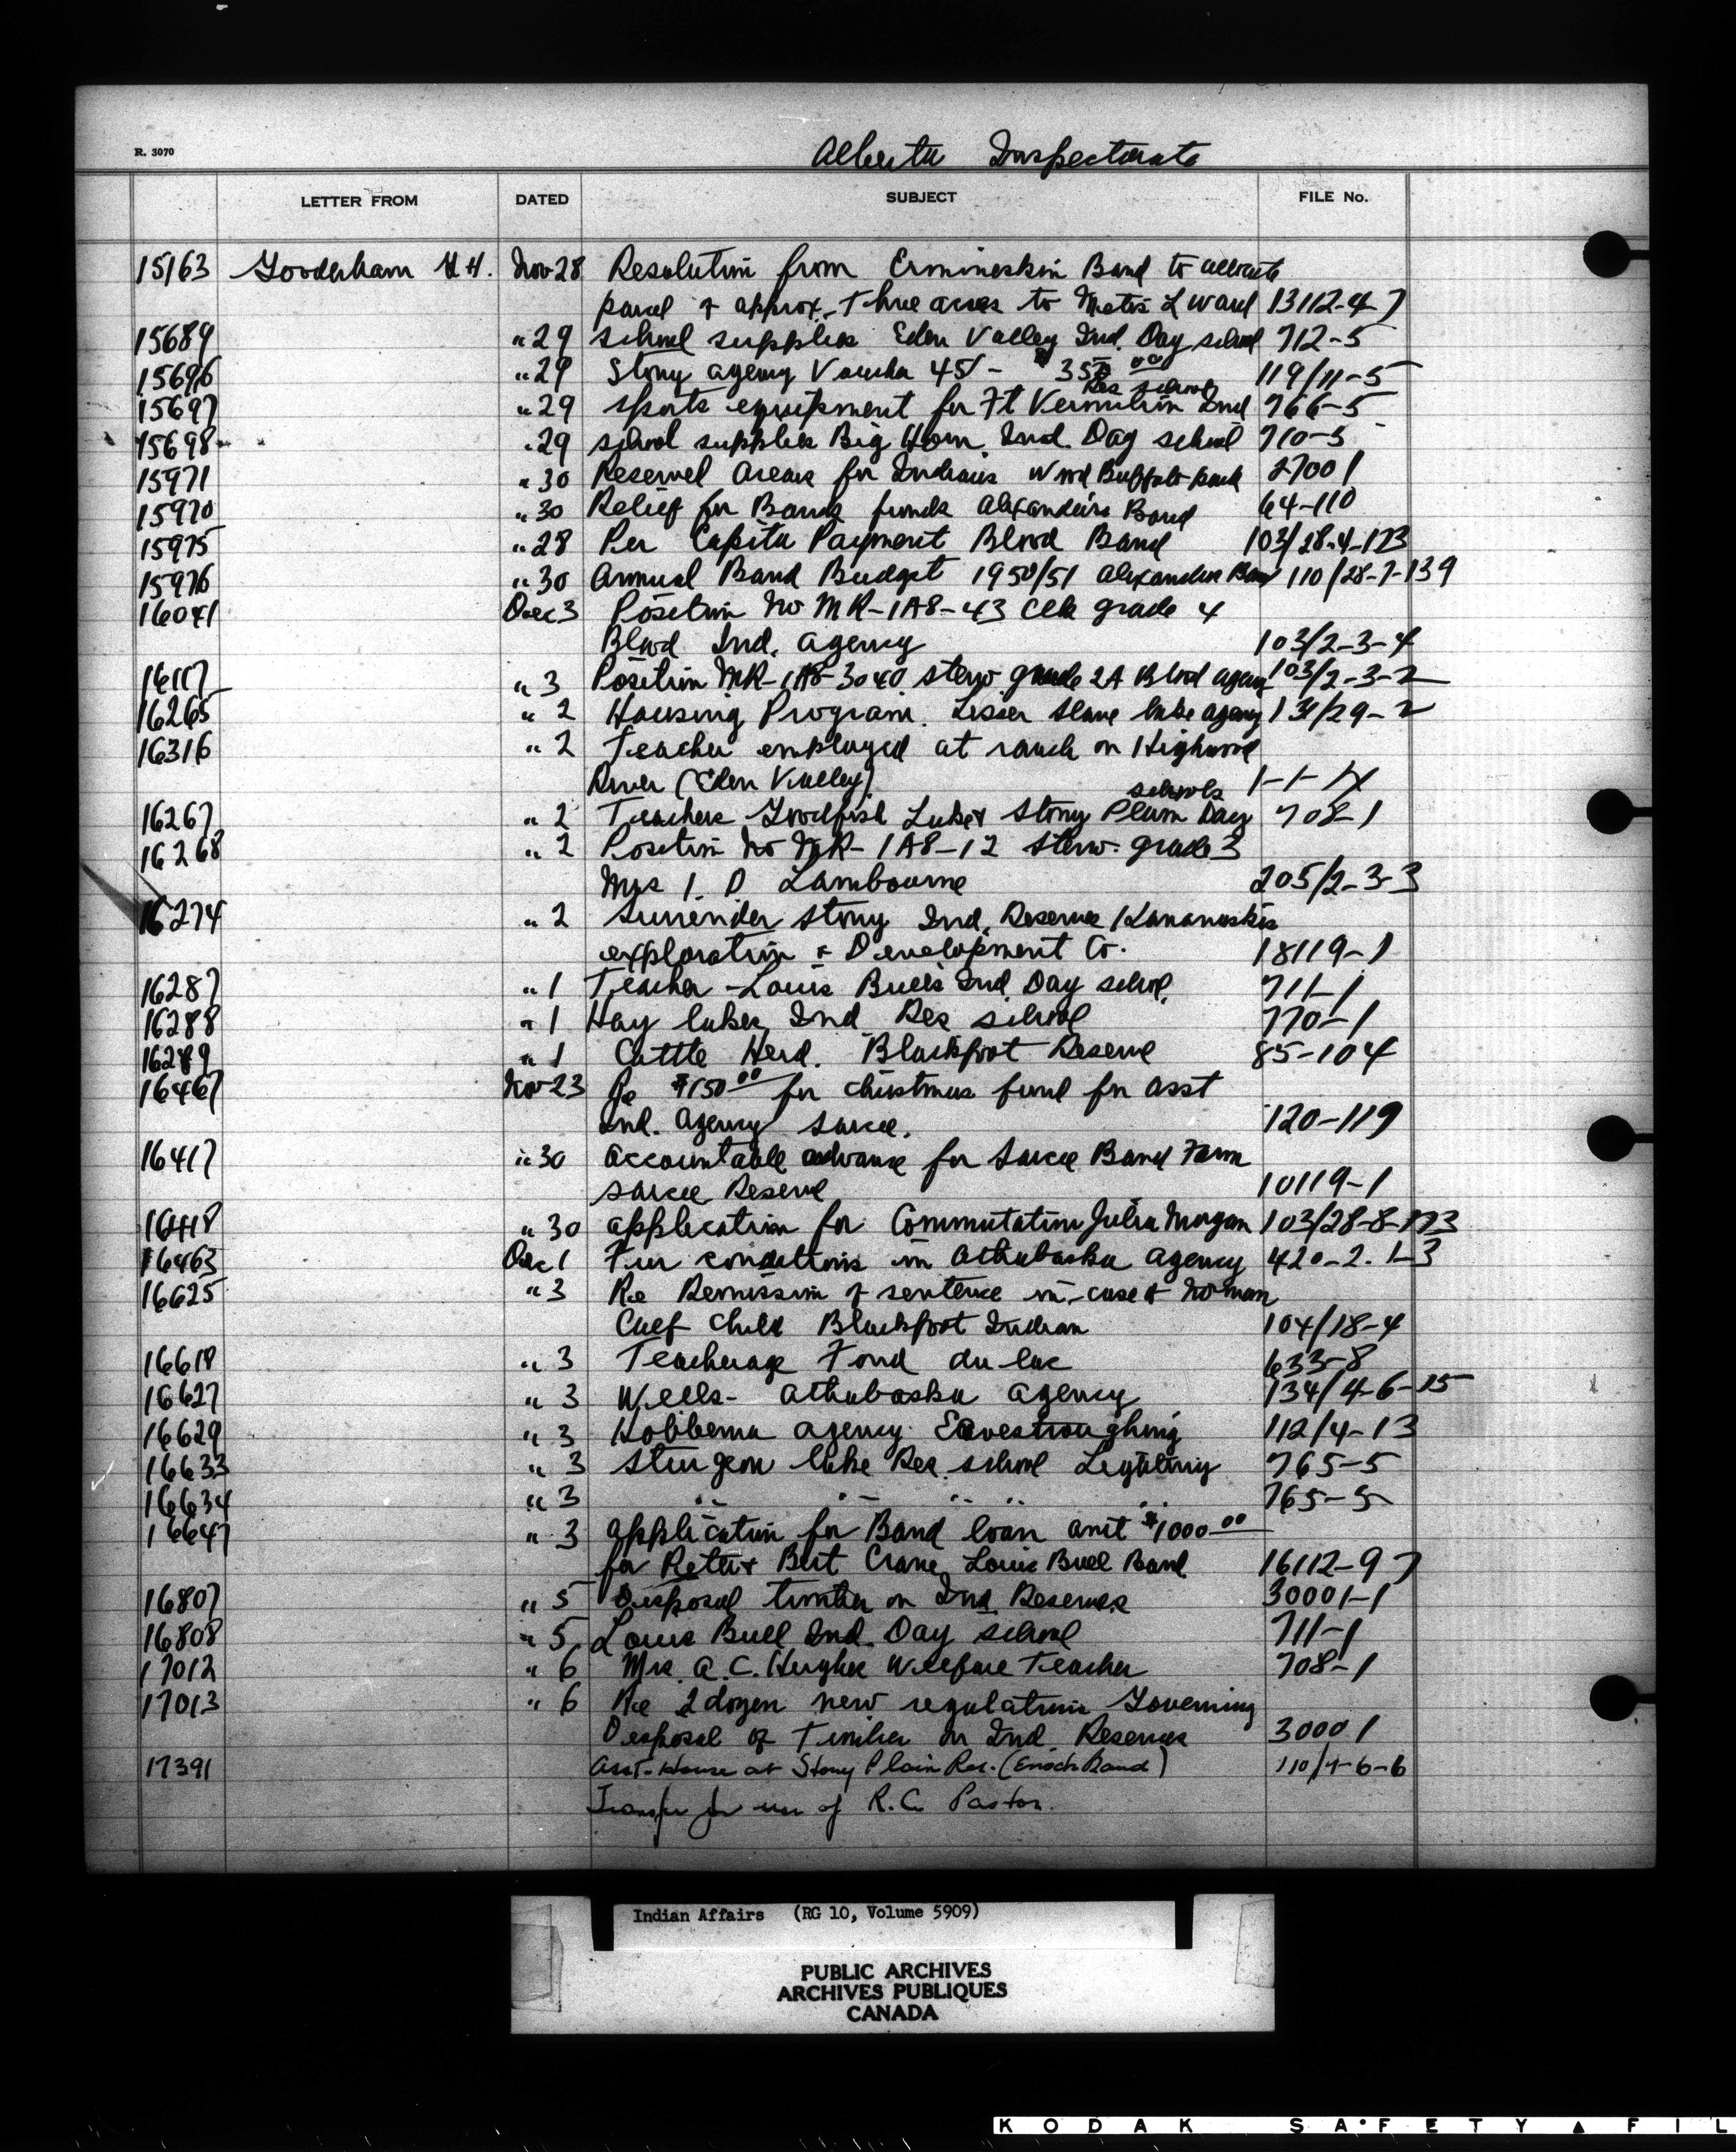 R. 3070
Alberta Inspectorate
LETTER FROM DATED SUBJECT FILE No.
15163 Gooderham H. Nov 28 Resolution from Ermineskin Band to allocate
parcel of approx. three acres to Metis L Ward 13112-4-7
15689 " 29 school supplies Eden Valley Ind. Day school 712-5
15696 " 29 Stony agency Voucher 451 - 119/11-5
Res school
15697 " 29 sports equipment for Ft Vermilion Ind 766-5
15698 " 29 school supplies Big Horn Ind. Day school 710-5
15971 " 30 Reserved Areas for Indians Wood Buffalo park 27001
15970 " 30 Relief for Band funds Alexander's Band 64-110
15975 " 28 Per Capita Payment Blood Band 103/28-4-173
15976 " 30 Annual Band Budget 1950/51 Alexander Band 110/28-7-139
16041 Dec 3 Position No MR-1A8-43 Clk grade 4
Blood Ind. agency 103/2-3-4
16117 " 3 Position MR-1A8-3040 steno grade 2A Blood agency 103/2-3-2
16265 " 2 Housing Program. Lesser Slave lake agency 131/29-2
16316 " 2 Teacher employed at ranch on Highwood
River (Eden Valley) 1-1-
schools
16267 " 2 Teachers Goodfish Lake & Stony Plain Day 708-1
16268 " 2 Position No MR-1A8-12 steno. grade 3
Mrs I. D Lambourne 205/2-3-3
16274 " 2 Surrender Stony Ind. Reserves Kananaskis
exploration & Development Co. 18119-1
16287 " 1 Teacher - Louis Bull's Ind. Day school 711-1
16288 " 1 Hay lakes Ind Res school 770-1
16289 " 1 Cattle Herd. Blackfoot Reserve 85-104
16467 Nov 23 Re $150 00 for christmas fund for asst
Ind. agency sarcee. 120-119
16417 " 30 Accountable advance for Sarcee Band Farm
sarcee Reserve 10119-1
16418 " 30 application for Commutation Julia Morgan 103/28-8-173
16463 Dec 1 Fur conditions in Athabaska agency 420-2-1-3
16625 " 3 Re Remission of sentence in case of Norman
Calf Child Blackfoot Indian 104/18-4
16618 " 3 Teacherage Fond du lac 633-8
16627 " 3 Wells - Athabaska agency 134/4-6-15
16629 " 3 Hobbema agency Eavestroughing 112/4-13
16633 " 3 Sturgeon lake Res. school Lighting 765-5
16634 " 3 " " " " " 765-5
16647 " 3 application for Band loan amt $1000 00
for Bert Crane, Louis Bull Band 16112-9-7
16807 " 5 Disposal timber on Ind Reserves 30001-1
16808 " 5 Louis Bull Ind. Day school 711-1
17012 " 6 Mrs. A. C. Hughes Welfare Teacher 708-1
17013 " 6 Re 2 dozen new regulations Governing
Disposal of Timber on Ind. Reserves 30001
17391 Asst. House at Stony Plain Res. (Enoch Band) 110/4-6-6
Transfer for use of R.C. Pastor.
Indian Affairs (RG 10, Volume 5909)
PUBLIC ARCHIVES
ARCHIVES PUBLIQUES
CANADA
KODAK SAFETY ▲ FIL